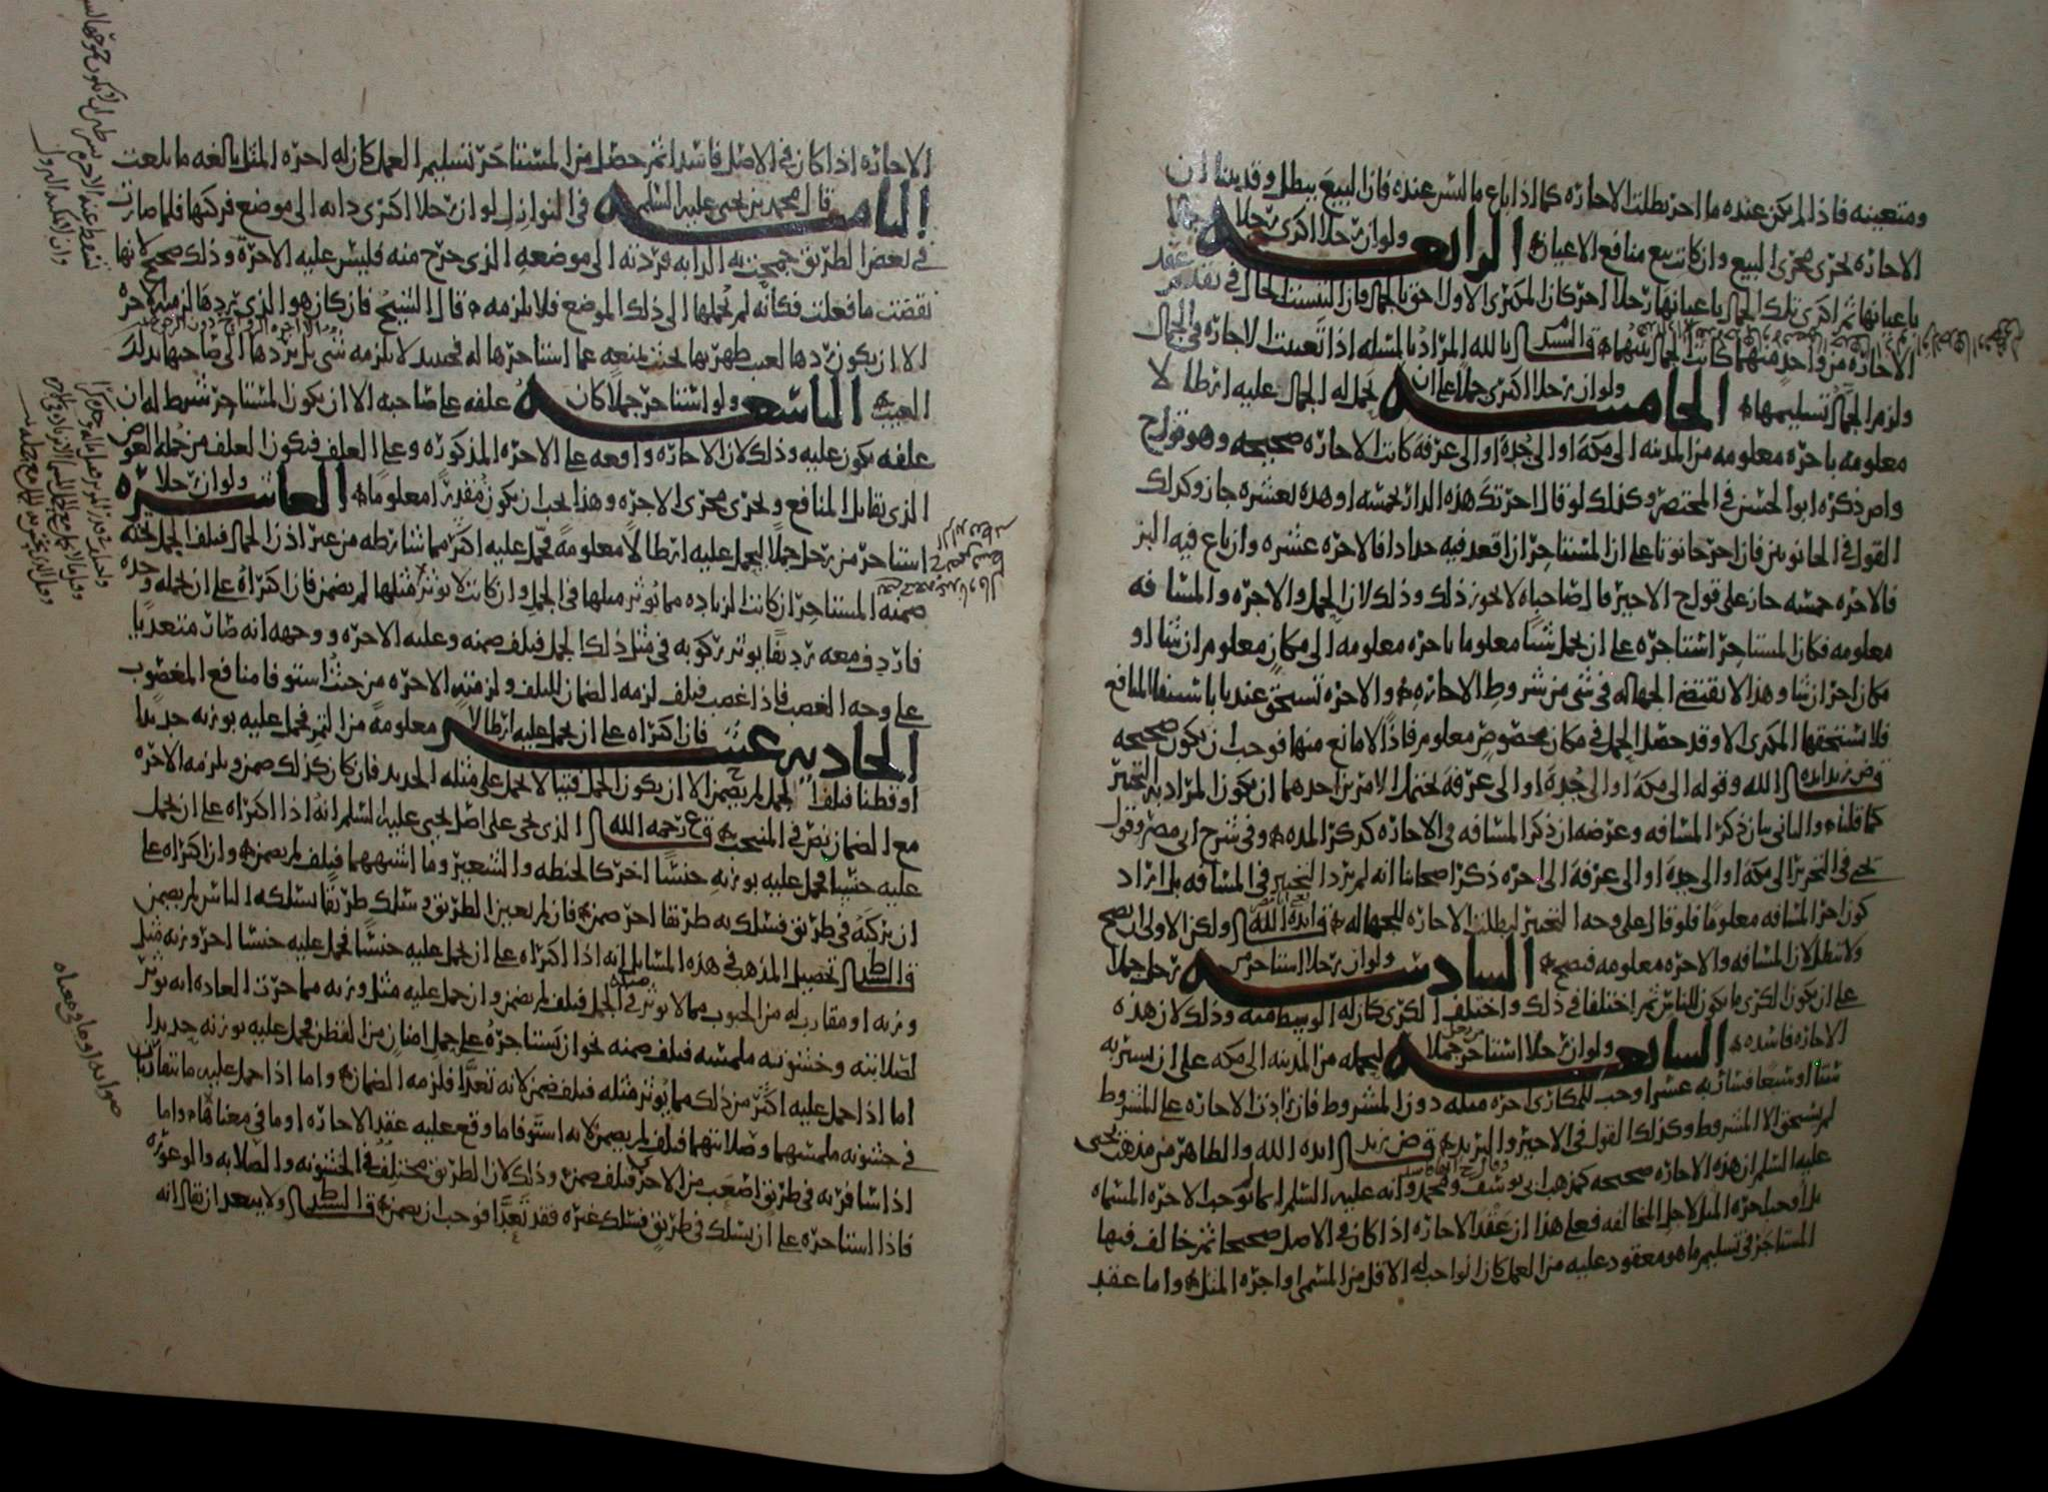 ومتعينه فاذا لم يكن عنده ما اجر بطلت الاجاره كما اذا باع ما ليس عنده فان البيع يبطل وقد بينا ان
الاجاره تجرى مجرى البيع وان كانت بيع منافع الاعيان الرابعه ولو ان رجلا اكرى رجلا جمالا
باعيانها ثم اكرى تلك الجمال باعيانها رجلا اخر كان المكترى الاول احق بالجمال فان التبست الحال في تقدم عقد
الاجاره من واحد منهما كانت الجمال بينهما قال السيد بالله المراد بالمسله اذا تعينت الاجاره في الجمال
ولزم الجمال تسليمها الخامسه ولو ان رجلا اكترى جملا على ان يحمل له الجمال عليه ارطالا
معلومه باجره معلومه من المدينه الى مكه او الى جده او الى عرفه كانت الاجاره صحيحه وهو قول ح
وص ذكره ابو الحسن في المختصر وكذلك لو قال اجرتك هذه الدار بخمسه او هذه بعشره جاز وكذلك
القول في الحانوتين فان اجر حانوتا على ان المستاجر ان اقعد فيه حدادا فالاجره عشره وان باع فيه البز
فالاجره خمسه جاز على قول ح الاخير قال صاحباه لا يجوز ذلك وذلك لان الحمل والاجره والمسافه
معلومه فكان المستاجر استاجره على ان يحمل شيئا معلوما باجره معلومه الى مكان معلوم ان شاء او
مكان اخر ان شا وهذا لا يقتضى الجهاله في شى من شروط الاجاره والاجره تستحق عندنا باستيفا المنافع
فلا يستحقها المكرى الا وقد حصل الحمل في مكان مخصوص معلوم فاذا لا مانع منها فوجب ان يكون صحيحه
قال ض زيد ايده الله وقوله الى مكه او الى جده او الى عرفه يحتمل الامرين احدهما ان يكون المراد به التخيير
كما قلناه والثانى بيان ذكر المسافه وغرضه ان ذكر المسافه في الاجاره كذكر المده وفي شرح ابى مضر وقول
يحيى في التحرير الى مكه او الى جده او الى عرفه الى اخره ذكر اصحابنا انه لم يرد التخيير في المسافه بل اراد
كون اخر المسافه معلوما فلو قال على وجه التخيير لبطلت الاجاره للجهاله قال ايده الله ولكن الاولى ان يصح
ولا تبطل لان المسافه والاجره معلومه فيصح السادسه ولو ان رجلا استاجر من رجل جملا
على ان يكون الكرى ما يكون للناس ثم اختلفا في ذلك واختلف الكرى كان له الوسط منه وذلك لان هذه
الاجاره فاسده السابعه ولو ان رجلا استاجر من رجل جملا ليحمله من المدينه الى مكه على ان يسير به
ستا او سبعا فسار به عشرا وجب للمكارى اجره مثله دون المشروط فان زادت الاجاره على المشروط
لم يستحق الا المشروط وكذلك القول في الاجير والبريد قال ض زيد ايده الله والظاهر من مذهب يحيى
عليه السلم ان هذه الاجاره صحيحه كمذهب ابى يوسف ومحمد وانه عليه السلم انما لم يوجب الاجره المسماه
بل اوجب اجره المثل لاجل المخالفه فعلى هذا ان عقد الاجاره اذا كان في الاصل صحيحا ثم خالف فيها
المستاجر في تسليم ما هو معقود عليه من العمل كان الواجب له الاقل من المسمى او اجره المثل واما عقد
الاجاره اذا كان في الاصل فاسدا ثم حصل من المستاجر تسليم العمل كان له اجره المثل بالغه ما بلغت
الثامنه قال محمد بن يحيى عليه السلم في النوازل لو ان رجلا اكترى دابه الى موضع فركبها فلما صارت
في بعض الطريق جمحت به الدابه فردته الى موضعه الذى خرج منه فليس عليه الاجره وذلك صحيح لانها
نقضت ما فعلت فكانه لم يحملها الى ذلك الموضع فلا يلزمه قال الشيخ فان كان هو الذى يردها لزمته الاجره
الا ان يكون ردها لعيب ظهر بها بحيث يمنعه عما استاجرها له فحينئذ لا يلزمه شى بل يردها الى صاحبها بذلك
العيب التاسعه ولو استاجر جملا كان علفه على صاحبه الا ان يكون المستاجر شرط له ان
علفه يكون عليه وذلك لان الاجاره واقعه على الاجره المذكوره وعلى العلف فيكون العلف من جمله العوض
الذى يقابل المنافع ويجرى مجرى الاجره وهذا يجب ان يكون مقدرا معلوما العاشره ولو ان رجلا
استاجر من رجل جملا ليحمل عليه ارطالا معلومه فحمل عليه اكثر مما شارطه من غير اذن الجمال فتلف الجمل تحته
ضمنه المستاجر ان كانت الزياده مما يوثر مثلها في الجمل وان كانت لا توثر مثلها لم يضمن فان اكراه على ان يحمله وحده
فاردف معه رديفا يوثر ركوبه في مثل ذلك الجمل فتلف ضمنه وعليه الاجره ووجهه انه صار متعديا
على وجه الغصب فاذا غصب فتلف لزمه الضمان للتلف ولزمته الاجره من حيث استوفا منافع المغصوب
الحاديه عشر فان اكتراه على ان يحمل عليه ارطالا معلومه من التمر فحمل عليه بوزنه حديدا
او قطنا فتلف الجمل لم يضمن الا ان يكون الجمل فتيا لا يحمل على مثله الحديد فان كان كذلك ضمن ويلزمه الاجره
مع الضمان نص في المنتخب قال ع رحمه الله الذى يجى على اصل يحيى عليه السلم انه اذا اكراه على ان يحمل
عليه جنسا فحمل عليه بوزنه جنسا اخر كالحنطه والشعير وما اشبههما فتلف لم يضمن وان اكراه على
ان يركبه في طريق فسلك به طريقا اخر ضمن فان لم يعين الطريق وسلك طريقا يسلكه الناس لم يضمن
قال السيد تحصيل المذهب في هذه المسايل انه اذا اكراه على ان يحمل عليه جنسا فحمل عليه جنسا اخر وزنه مثل
وزنه او مقارب له من الحبوب مما لا يوثر في الجمل فتلف لم يضمن وان حمل عليه مثل وزنه مما جرت العاده انه يوثر
لصلابته وخشونه ملمسه فتلف ضمنه نحو ان يستاجره على حمل امنان من القطن فحمل عليه بوزنه حديدا
اما اذا حمل عليه اكثر من ذلك مما يوثر مثله فتلف ضمن لانه تعدا فلزمه الضمان واما اذا حمل عليه ما يتقارب
في خشونه ملمسهما وصلابتهما فتلف لم يضمن لانه استوفا ما وقع عليه عقد الاجاره او ما في معناها واما
اذا سافر به في طريق اصعب من الاخر فتلف ضمن وذلك لان الطريق مختلف في الخشونه والصلابه والوعوره
فاذا استاجره على ان يسلك في طريق فسلك غيره فقد تعدا فوجب ان يضمن قال السيد ولا يبعد ان يقال انه
صوابه او ما في معناه